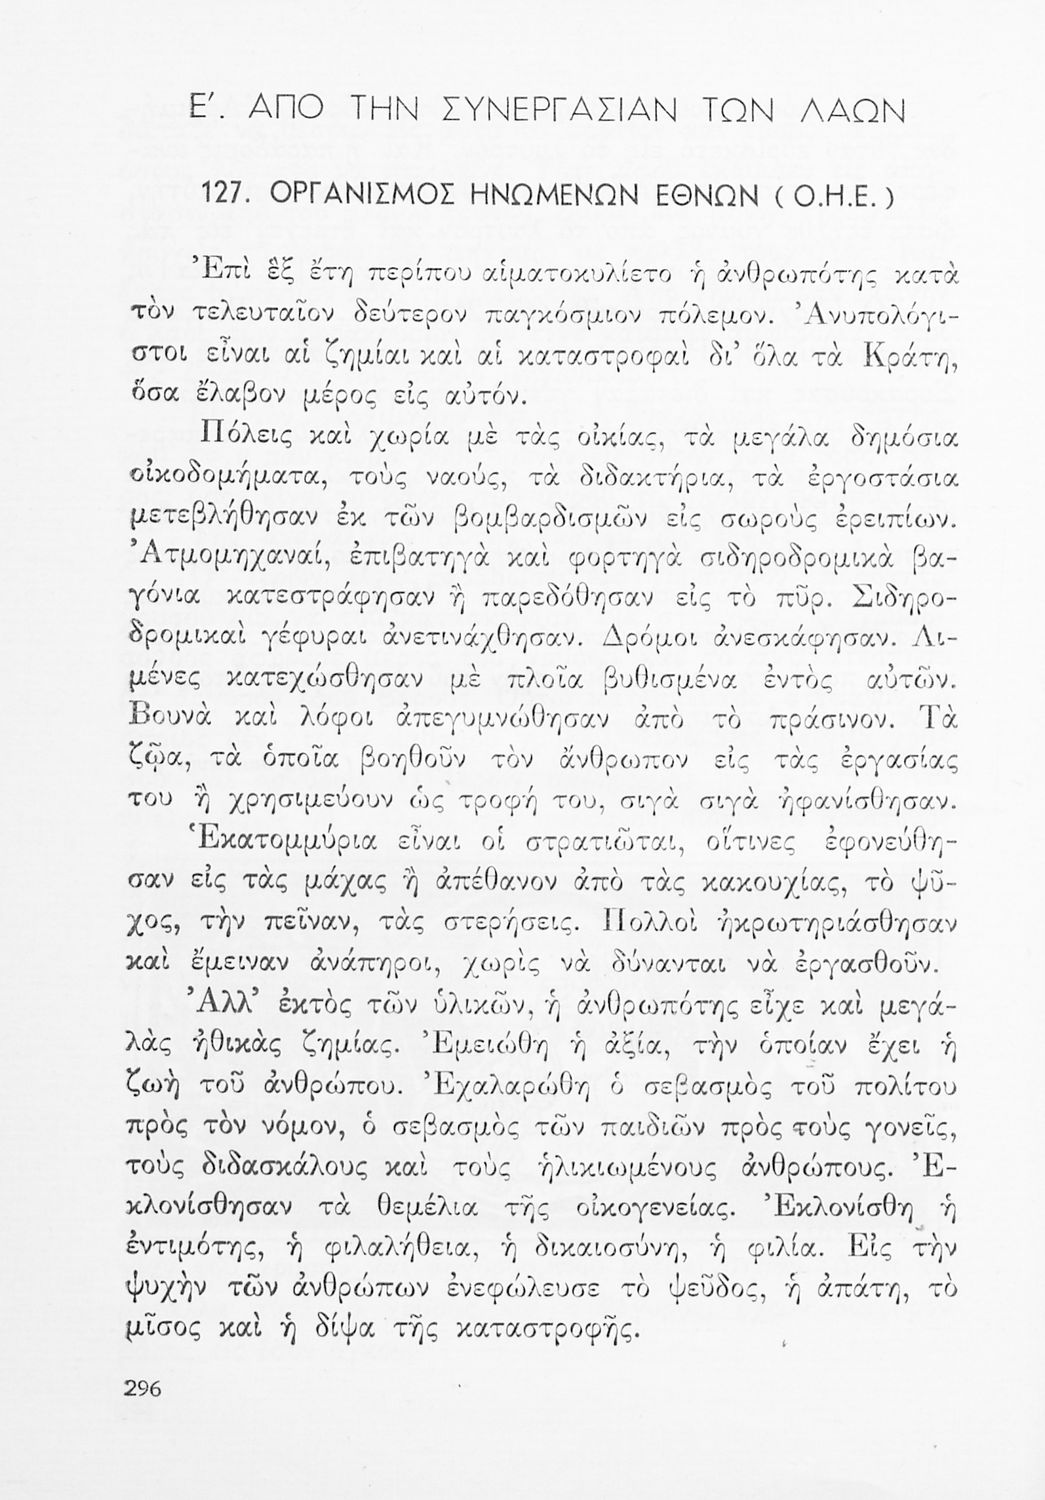 Ε΄. ΑΠΟ ΤΗΝ ΣΥΝΕΡΓΑΣΙΑΝ ΤΩΝ ΛΑΩΝ
127. ΟΡΓΑΝΙΣΜΟΣ ΗΝΩΜΕΝΩΝ ΕΘΝΩΝ ( Ο.Η.Ε. )
Ἐπὶ ἓξ ἔτη περίπου αἱματοκυλίετο ἡ ἀνθρωπότης κατὰ
τὸν τελευταῖον δεύτερον παγκόσμιον πόλεμον. Ἀνυπολόγι-
στοι εἶναι αἱ ζημίαι καὶ αἱ καταστροφαὶ δι’ ὅλα τὰ Κράτη,
ὅσα ἔλαβον μέρος εἰς αὐτόν.
Πόλεις καὶ χωρία μὲ τὰς οἰκίας, τὰ μεγάλα δημόσια
οἰκοδομήματα, τοὺς ναούς, τὰ διδακτήρια, τὰ ἐργοστάσια
μετεβλήθησαν ἐκ τῶν βομβαρδισμῶν εἰς σωροὺς ἐρειπίων.
Ἀτμομηχαναί, ἐπιβατηγὰ καὶ φορτηγὰ σιδηροδρομικὰ βα-
γόνια κατεστράφησαν ἢ παρεδόθησαν εἰς τὸ πῦρ. Σιδηρο-
δρομικαὶ γέφυραι ἀνετινάχθησαν. Δρόμοι ἀνεσκάφησαν. Λι-
μένες κατεχώσθησαν μὲ πλοῖα βυθισμένα ἐντὸς αὐτῶν.
Βουνὰ καὶ λόφοι ἀπεγυμνώθησαν ἀπὸ τὸ πράσινον. Τὰ
ζῷα, τὰ ὁποῖα βοηθοῦν τὸν ἄνθρωπον εἰς τὰς ἐργασίας
του ἢ χρησιμεύουν ὡς τροφή του, σιγὰ σιγὰ ἠφανίσθησαν.
Ἑκατομμύρια εἶναι οἱ στρατιῶται, οἵτινες ἐφονεύθη-
σαν εἰς τὰς μάχας ἢ ἀπέθανον ἀπὸ τὰς κακουχίας, τὸ ψῦ-
χος, τὴν πεῖναν, τὰς στερήσεις. Πολλοὶ ἠκρωτηριάσθησαν
καὶ ἔμειναν ἀνάπηροι, χωρὶς νὰ δύνανται νὰ ἐργασθοῦν.
Ἀλλ’ ἐκτὸς τῶν ὑλικῶν, ἡ ἀνθρωπότης εἶχε καὶ μεγά-
λὰς ἠθικὰς ζημίας. Ἐμειώθη ἡ ἀξία, τὴν ὁποίαν ἔχει ἡ
ζωὴ τοῦ ἀνθρώπου. Ἐχαλαρώθη ὁ σεβασμὸς τοῦ πολίτου
πρὸς τὸν νόμον, ὁ σεβασμὸς τῶν παιδιῶν πρὸς τοὺς γονεῖς,
τοὺς διδασκάλους καὶ τοὺς ἡλικιωμένους ἀνθρώπους. Ἐ-
κλονίσθησαν τὰ θεμέλια τῆς οἰκογενείας. Ἐκλονίσθη ἡ
ἐντιμότης, ἡ φιλαλήθεια, ἡ δικαιοσύνη, ἡ φιλία. Εἰς τὴν
ψυχὴν τῶν ἀνθρώπων ἐνεφώλευσε τὸ ψεῦδος, ἡ ἀπάτη, τὸ
μῖσος καὶ ἡ δίψα τῆς καταστροφῆς.
296